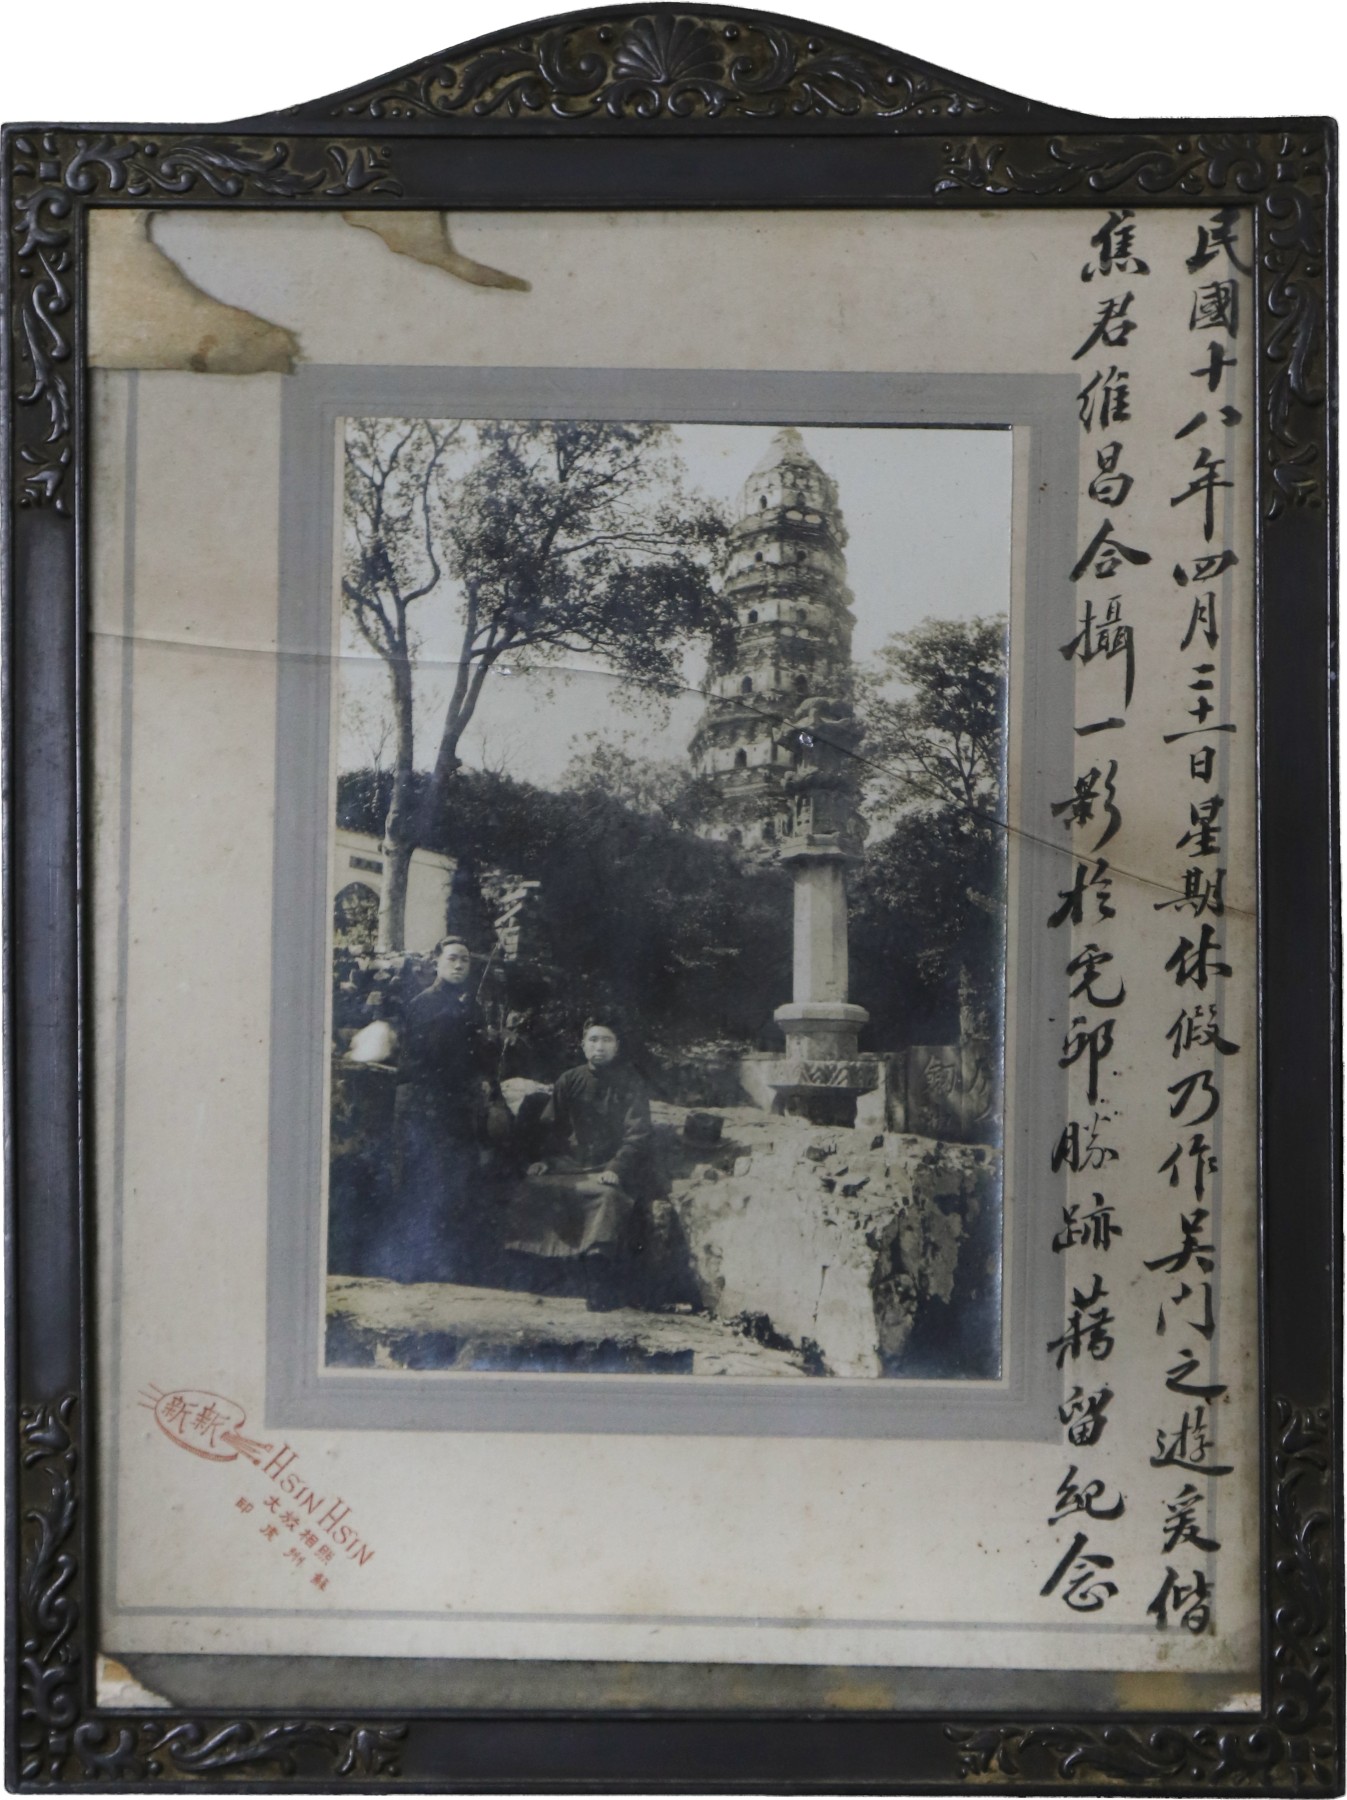 民國十八年四月二十一日星期休假乃作吴门之遊爰偕
焦君維昌合攝一影於虎邱勝跡藉留紀念
新新
HSIN HSIN
蘇州照相放大
虎印
劍